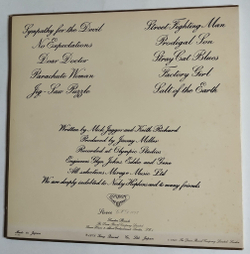 Sympathy for the Devil
No Expectations
Dear Doctor
Parachute Woman
Jig-Saw Puzzle
Street Fighting Man
Prodigal Son
Stray Cat Blues
Factory Girl
Salt of the Earth
Written by Mick Jagger and Keith Richard
Produced by Jimmy Miller
Recorded at Olympic Studios
Engineers Glyn Johns Eddie and Gene
All selections Mirage Music Ltd
We are deeply indebted to Nicky Hopkins and to many friends
LONDON
Stereo
London Records
Made in Japan